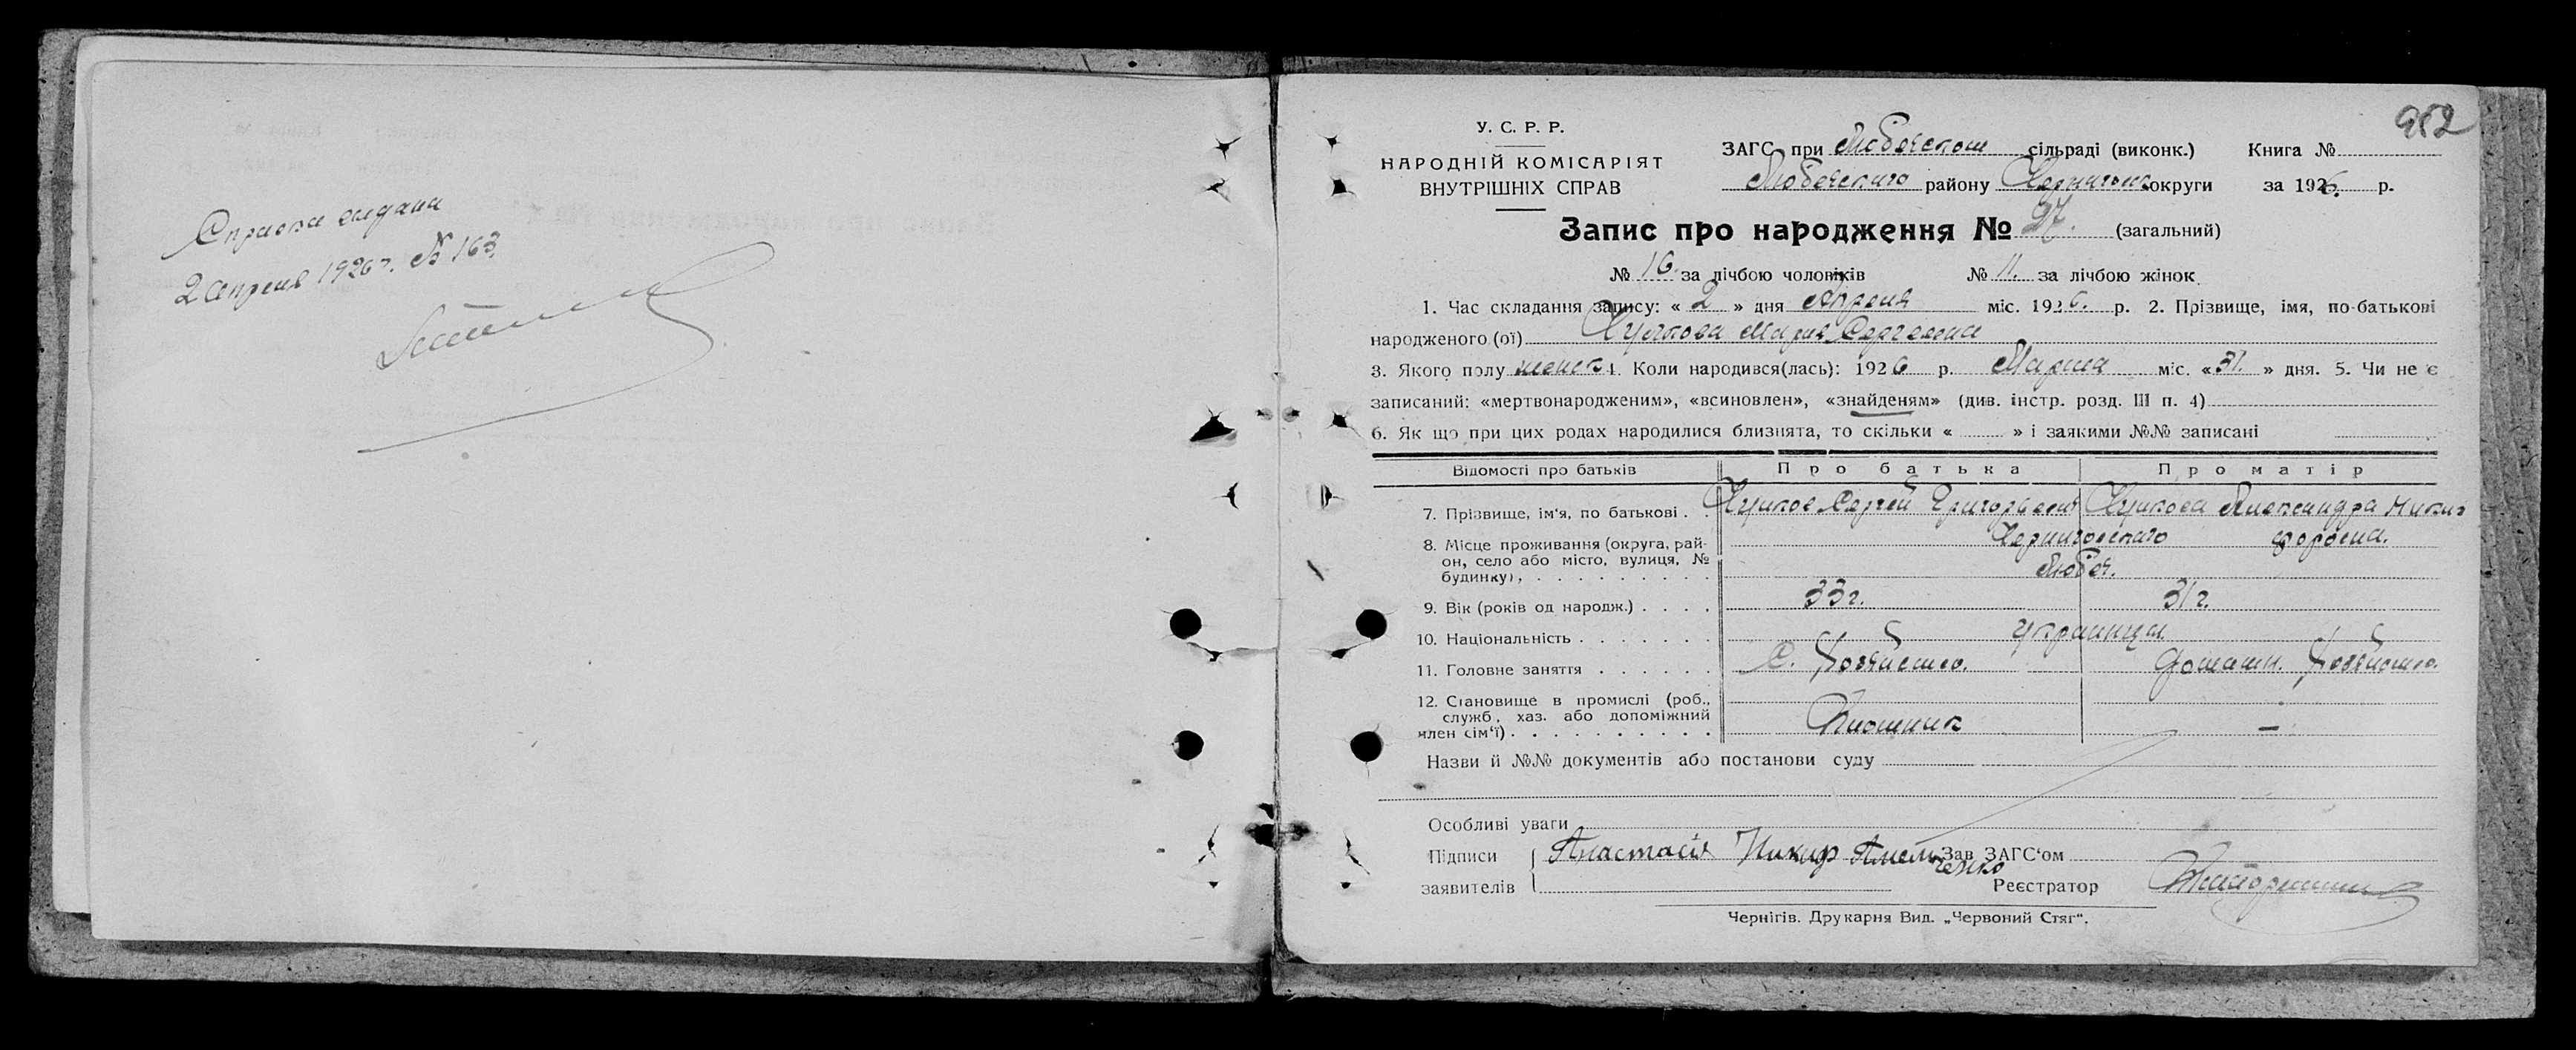 Справка выдана
2 Апреля 1926 г. № 163
952
У. С. Р. Р.
НАРОДНІЙ КОМІСАРІЯТ
ВНУТРІШНІХ СПРАВ
ЗАГС при Любечском сільраді (виконк.) Книга №
Любечского району Чернигов. округи за 1926. р.
Запис про народження № 27. (загальний)
№ 16. за лічбою чоловіків № 11. за лічбою жінок
1. Час складання запису: « 2 » дня Апреля міс. 1926. р. 2. Прізвище, імя, по-батькові
народженого (ої) Мария Сергеевна
3. Якого полу женск 4. Коли народився(лась): 1926 р. Марта міс. «31.» дня. 5. Чи не є
записаний: «мертвонародженим», «всиновлен», «знайденям» (див. інстр. розд. III п. 4)
6. Як що при цих родах народилися близнята, то скільки « » і заякими №№ записані
Відомості про батьків Про батька Про матір
7. Прізвище, ім'я, по батькові . . Сергей Григорьевич Александра Никиф
8. Місце проживання (округа, рай- Черниговского
он, село або місто, вулиця, № Любеч.
будинку), . . . . . . . . . .
9. Вік (років од народж.) . . . . 33 г. 31 г.
10. Національність . . . . . . . Украинцы
11. Головне заняття . . . . . . С. Хозяйство. Домашн. Хозяйство.
12. Становище в промислі (роб.,
служб, хаз. або допоміжний
член сім'ї) . . . . . . . . . . —
Назви й №№ документів або постанови суду
Особливі уваги
Підписи Анастасія Никиф Амельченко Зав. ЗАГС'ом
заявителів Реєстратор
Чернігів. Друкарня Вид. „Червоний Стяг“.